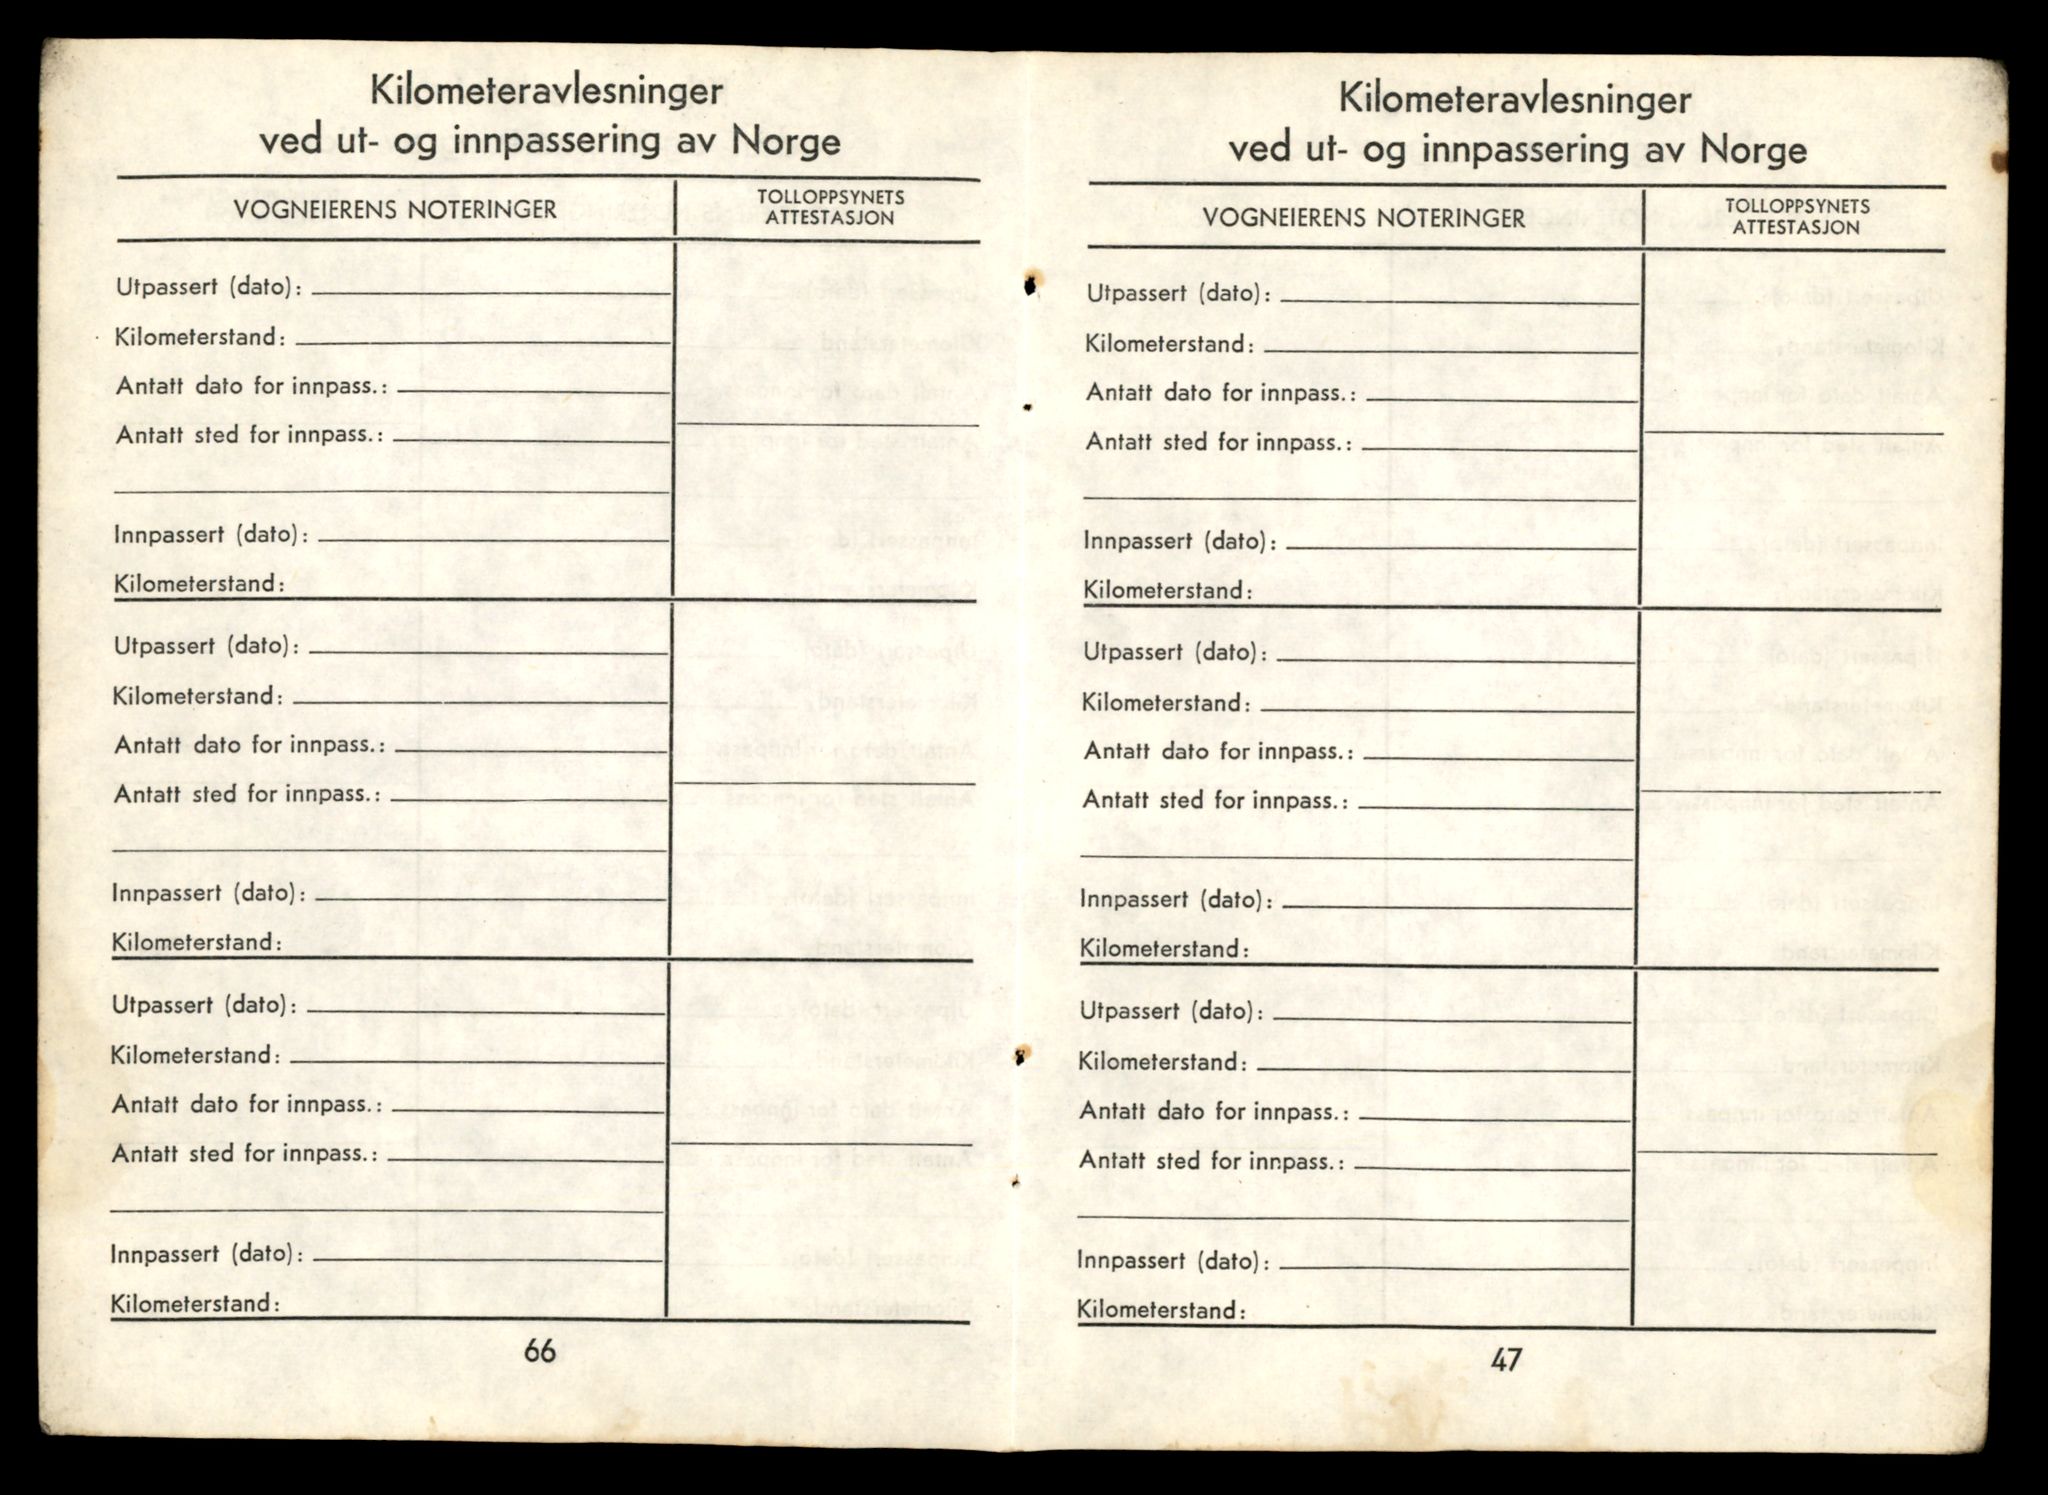 Kilometeravlesninger
ved ut- og innpassering av Norge
VOGNEIERENS NOTERINGER
TOLLOPPSYNETS
ATTESTASJON
Utpassert (dato):
Kilometerstand:
Antatt dato for innpass.:
Antatt sted for innpass.:
Innpassert (dato):
Kilometerstand:
Utpassert (dato):
Kilometerstand:
Antatt dato for innpass.:
Antatt sted for innpass.:
Innpassert (dato):
Kilometerstand:
Utpassert (dato):
Kilometerstand:
Antatt dato for innpass.:
Antatt sted for innpass.:
Innpassert (dato):
Kilometerstand:
66
Kilometeravlesninger
ved ut- og innpassering av Norge
VOGNEIERENS NOTERINGER
TOLLOPPSYNETS
ATTESTASJON
Utpassert (dato):
Kilometerstand:
Antatt dato for innpass.:
Antatt sted for innpass.:
Innpassert (dato):
Kilometerstand:
Utpassert (dato):
Kilometerstand:
Antatt dato for innpass.:
Antatt sted for innpass.:
Innpassert (dato):
Kilometerstand:
Utpassert (dato):
Kilometerstand:
Antatt dato for innpass.:
Antatt sted for innpass.:
Innpassert (dato):
Kilometerstand:
47